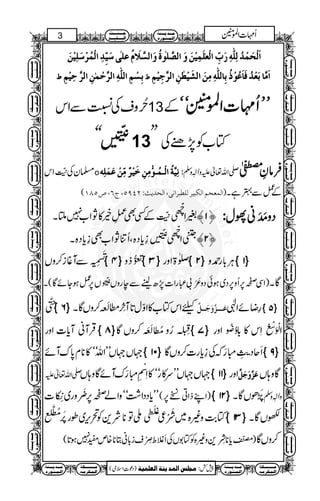 3 اُمہاتُ المؤمنین
اَلْحَمْدُ لِلّٰہِ رَبِّ الْعٰلَمِیْنَ وَ الصَّلٰوۃُ وَالسَّلَامُ عَلٰی سَیِّدِ الْمُرْسَلِیْنَ
اَمَّا بَعْدُ فَاَعُوْذُ بِاللّٰہِ مِنَ الشَّیْطٰنِ الرَّجِیْمِ ط بِسْمِ اللّٰہِ الرَّحْمٰنِ الرَّ حِیْمِ ط
’’اُمہاتُ المؤمنین‘‘ کے 13 حُروف کی نسبت سے اس
کتاب کو پڑھنے کی ’’13 نیّتیں‘‘
فرمانِ مصطفٰی صلی اللہ تعالیٰ علیہ واٰلہ وسلم: نِیَّۃُ الْمُؤْمِنِ خَیْرٌ مِّنْ عَمَلِہٖ ٥ مسلمان کی نیّت اس
کے عمل سے بہتر ہے۔ (المعجم الکبیر للطبرانی، الحدیث: ٥٩٤٢، ج٦، ص ١٨٥)
دو مَدَنی پھول:
{۱} بغیر اچھّی نیّت کے کسی بھی عملِ خیر کا ثواب نہیں ملتا۔
{۲} جتنی اچھّی نیّتیں زیادہ، اُتنا ثواب بھی زیادہ۔
{۱} ہر بار حمد و {۲} صلوٰۃ اور {۳} تعوُّذ و {۴} تسمِیہ سے آغاز کروں
گا۔ (اسی صفحہ پر اُوپر دی ہوئی دو عَرَبی عبارات پڑھ لینے سے چاروں نیّتوں پر عمل ہوجائے گا)۔
{۵} رضائے الٰہی عَزَّوَجَلَّ کیلئے اس کتاب کا اوّل تا آخر مطالَعہ کروں گا۔ {۶} حَتَّی
الْوُسْعْ اِس کا باوُضُو اور {۷} قبلہ رُو مطالَعہ کروں گا {۸} قرآنی آیات اور
{۹} اَحادیثِ مبارَکہ کی زیارت کروں گا {۱۰} جہاں جہاں ’’اللہ‘‘ کا نام پاک آئے
گا وہاں عَزَّوَجَلَّ اور {۱۱} جہاں جہاں ’’سرکار‘‘ کا اِسْمِ مبارَک آئے گا وہاں صلی اللہ تعالیٰ علیہ
واٰلہ وسلم پڑھوں گا۔ {۱۲} (اپنے ذاتی نسخے پر) ’’یادداشت‘‘ والے صفحہ پر ضَروری نِکات
لکھوں گا۔ {۱۳} کتابت وغیرہ میں شَرْعی غلَطی ملی تو ناشرین کو تحریری طور پر مُطَّلع
کروں گا (مصنّف یا ناشرین وغیرہ کو کتابوں کی اَغلاط صِرْف زبانی بتانا خاص مفید نہیں ہوتا)
پیش کش: مجلس المدینۃ العلمیۃ (دعوتِ اسلامی)